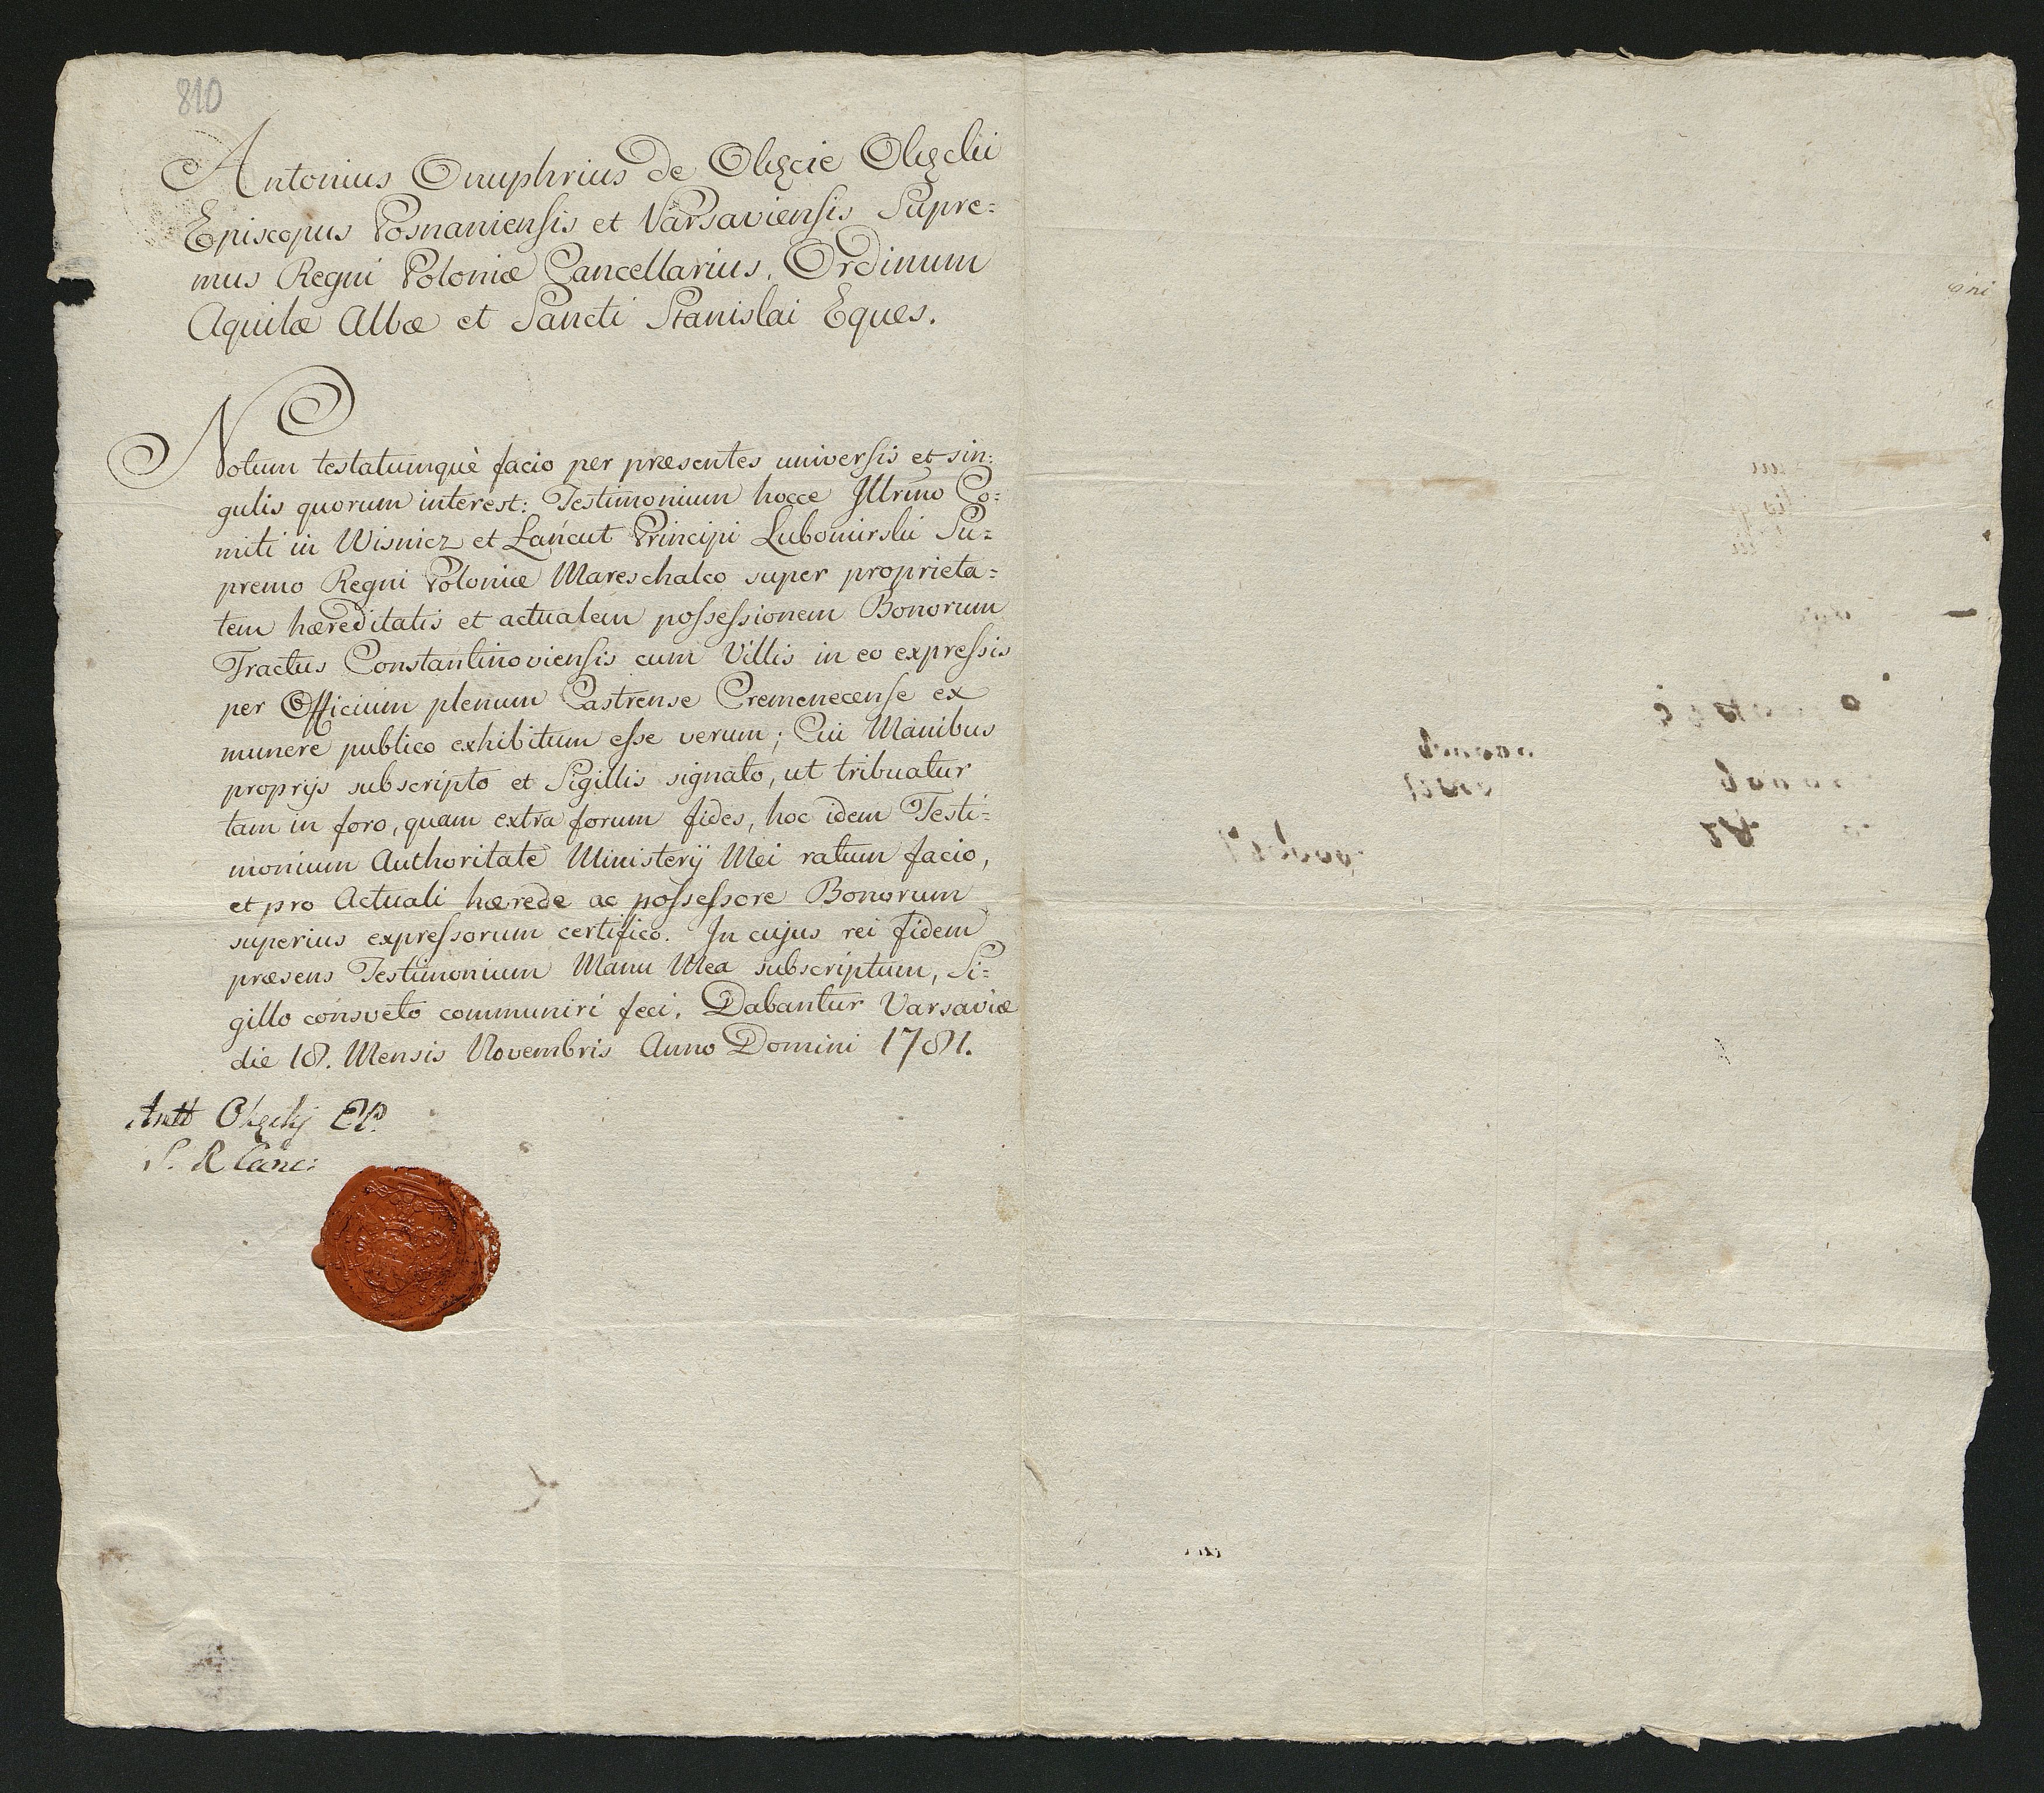 810
Antonius Onuphrius de Okęcie Okęcki
Episcopus Posnaniensis et Varsaviensis Supre=
mus Regni Poloniæ Cancellarius, Ordinum
Aquilæ Albæ et Sancti Stanislai Eques.
Notum testatumquè facio per præsentes universis et sin=
gulis quorum interest: Testimonium hocce Illrmo Co=
miti in Wisnicz et Łańcut Principi Lubomirski Su=
premo Regni Poloniæ Mareschalco super proprieta=
tem hæreditatis et actualem possessionem Bonorum
Tractus Constantinoviensis cum Villis in eo expressis
per Officium plenum Castrense Cremenecense ex
munere publico exhibitum esse verum; Cui Manibus
proprijs subscripto et Sigillis signato, ut tribuatur
tam in foro, quam extra forum fides, hoc idem Testi=
monium Authoritate Ministerij Mei ratum facio,
et pro Actuali hærede ac possessore Bonorum
superius expressorum certifico. In cujus rei fidem
præsens Testimonium Manu Mea subscriptum, Si=
gillo consveto communiri feci. Dabantur Varsaviæ
die 18. Mensis Novembris Anno Domini 1781.
Antt Okęckj EP.
S. R Canc: